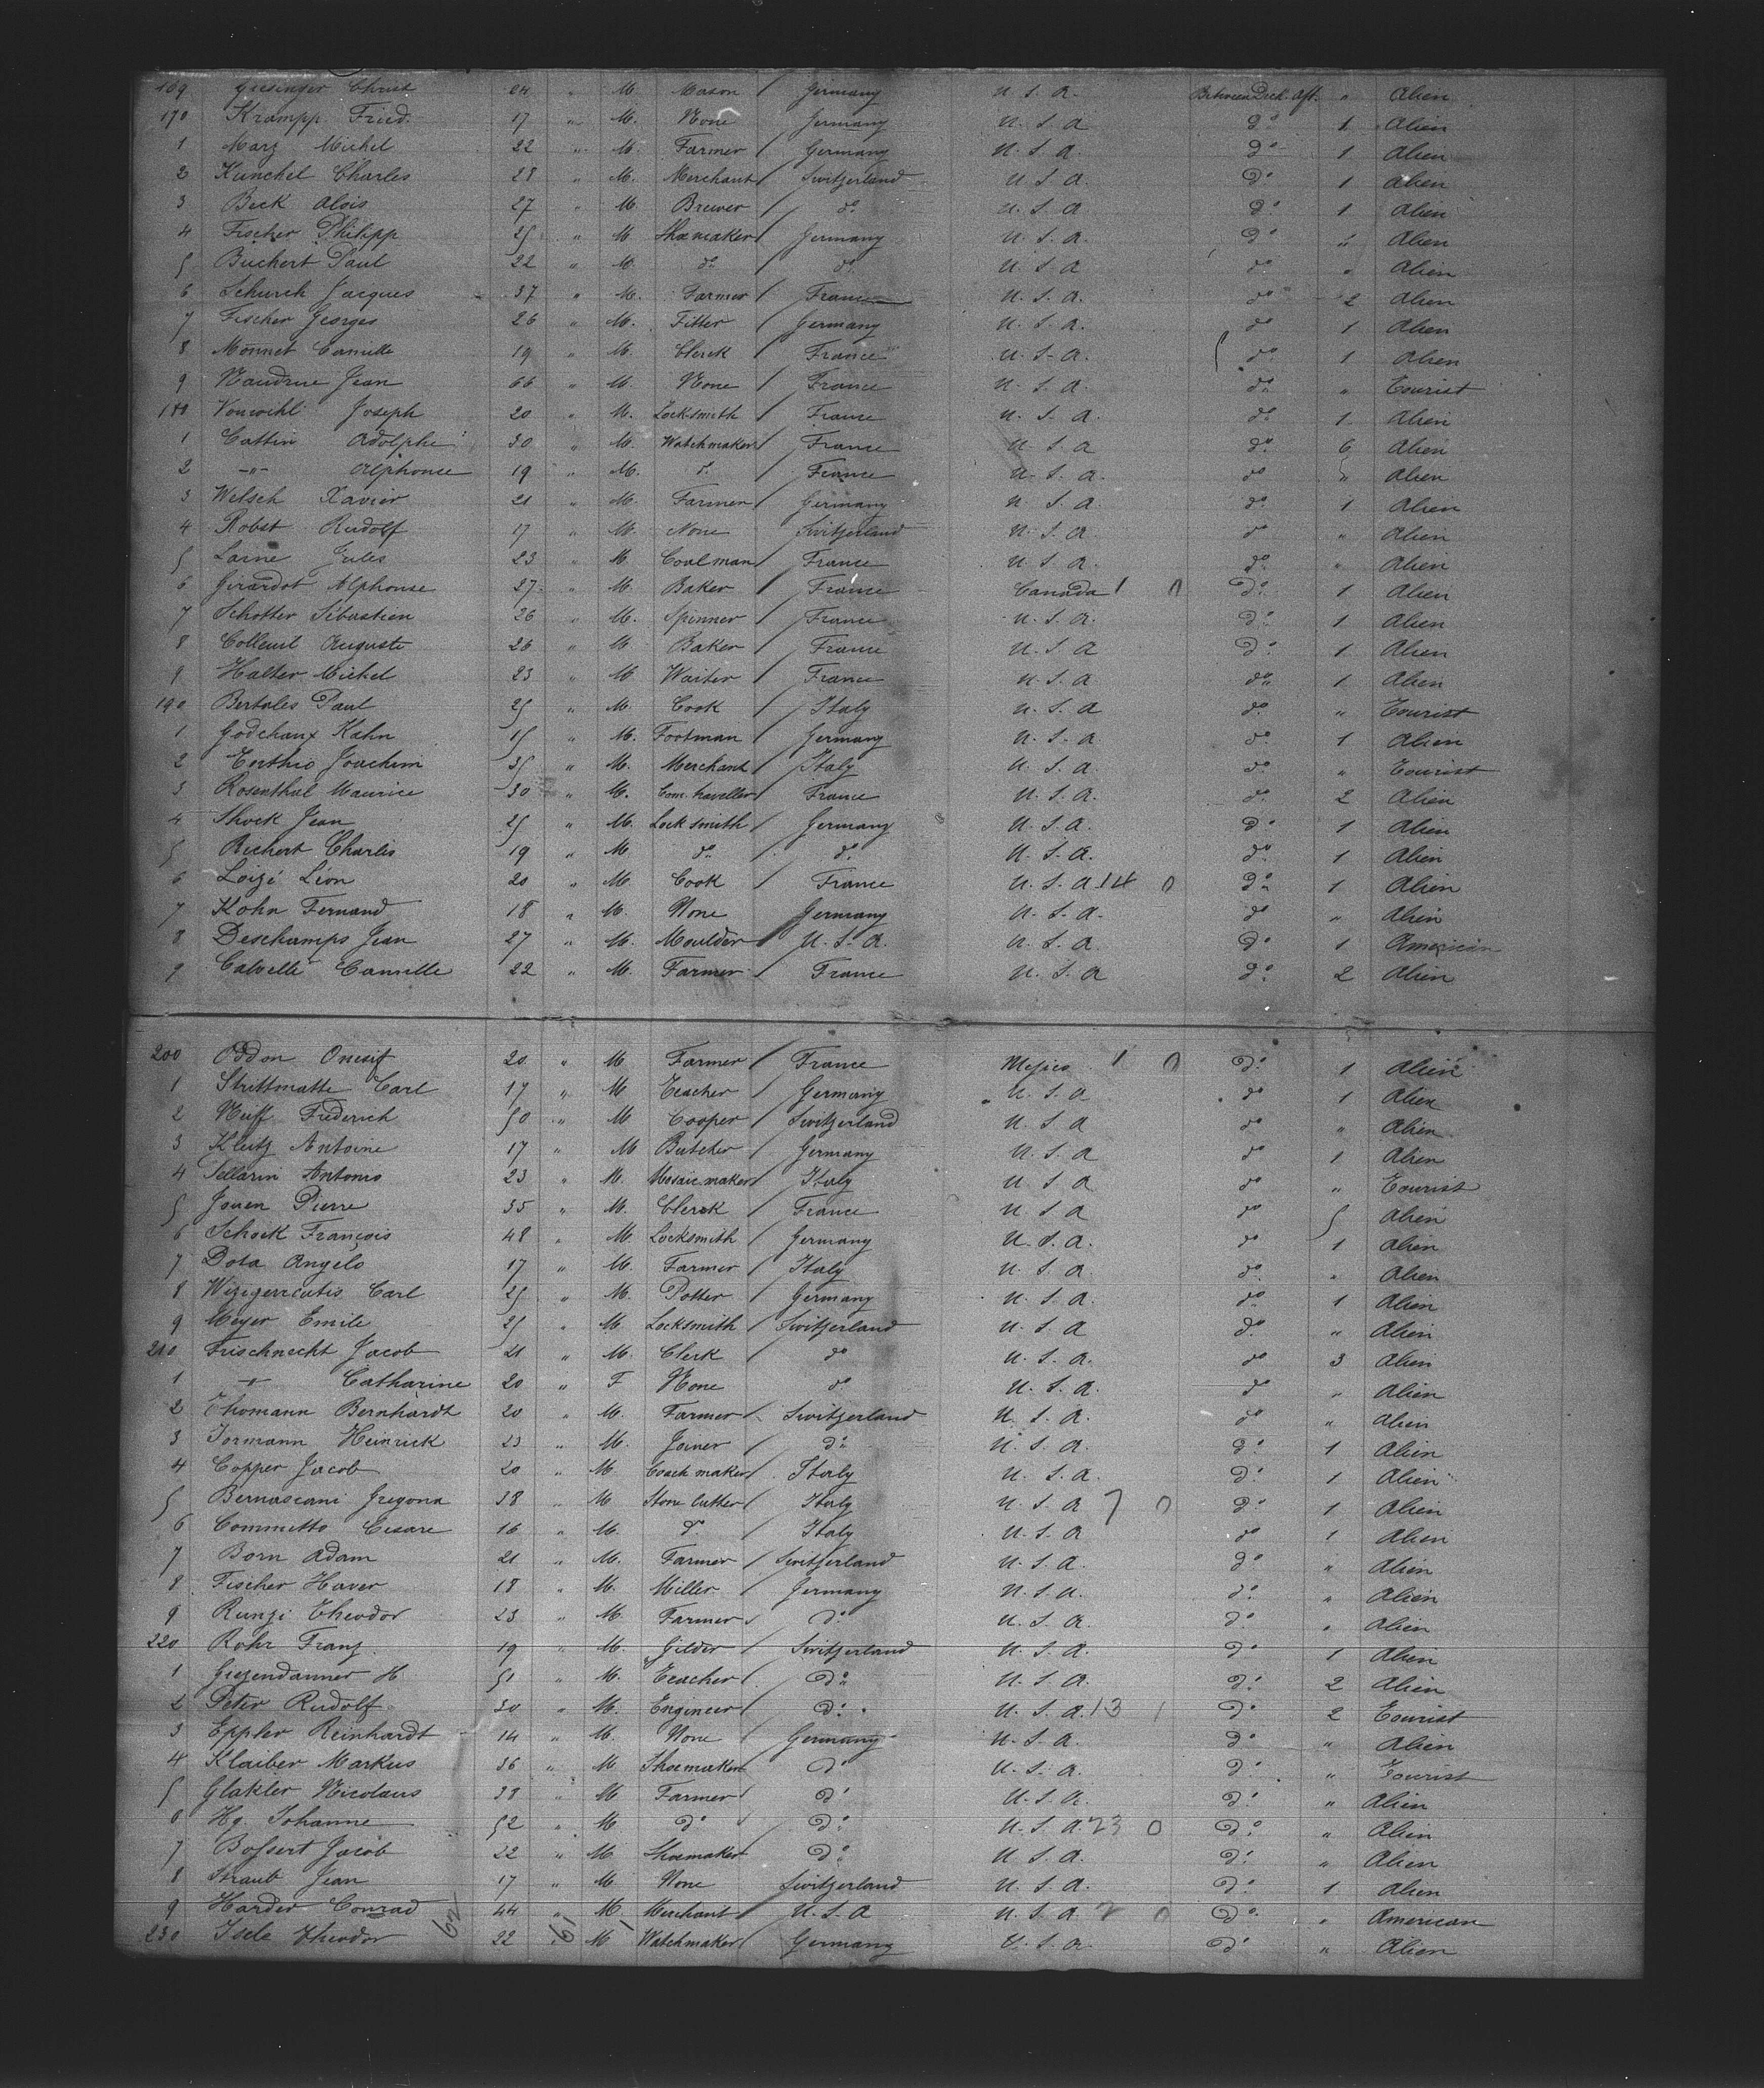 169 Giesinger Christ 24 " M. Mason / Germany U. S. A. Between Deck Aft. " Alien
170 Krampp Fried. 17 " M. None Germany U. S. A d° 1 Alien
1 Marz Michel 22 " M. Farmer / Germany U. S. A. d° 1 Alien
2 Kunchel Charles 28 " M. Merchant / Switzerland U. S. A. d° 1 Alien
3 Beck Alois 27 " M. Brewer / d° U. S. A d° 1 Alien
4 Fischer Philipp 25 " M Shoemaker / Germany U. S. A. d° " Alien
5 Buchert Paul 22 " M. d° / d° U. S. A d° " Alien
6 Schurch Jacques 37 " M. Farmer / France U. S. A. d° 2 Alien
7 Fischer Georges 26 " M. Fitter / Germany U. S. A. d° 1 Alien
8 Monnet Camille 19 " M. Clerck / France U. S. A. d° 1 Alien
9 Jean 66 " M. None / France U. S. A. d° " Tourist
180 Vonwihl Joseph 20 " M. Locksmith / France U. S. A. d° 1 Alien
1 Cattin Adolphe 30 " M. Watchmaker / France U. S. A d° 6 Alien
2 -"- Alphonse 19 " M. d° / France U. S. A. d° Alien
3 Welsch Xavier 21 " M Farmer / Germany U. S. A d° 1 Alien
4 Robst Rudolf 17 " M None Switzerland U. S. A. d° " Alien
5 Larne Jules 23 " M. Coalman / France U. S. A. d° " Alien
6 Girardot Alphonse 27 " M. Baker / France Canada 1 0 d° 1 Alien
7 Schotter Sébastien 26 " M. Spinner / France U. S. A. d° 1 Alien
8 Colleuil Auguste 26 " M Baker / France U. S. A d° 1 Alien
9 Halter Michel 23 " M Waiter / France U. S. A d° 1 Alien
190 Bertales Paul 25 " M. Cook / Italy U. S. A d° " Tourist
1 Godchaux Kahn 15 " M. Footman / Germany U. S. A d° 1 Alien
2 Joachim 35 " M. Merchant / Italy U. S. A. d° " Tourist
3 Rosenthal Maurice 30 " M. Com. traveller / France U. S. A. d° 2 Alien
4 Shock Jean 25 " M. Locksmith / Germany U. S. A. d° 1 Alien
5 Richert Charles 19 " M d° / d° U. S. A. d° 1 Alien
6 Loizé Léon 20 " M Cook / France U. S. A. 14 0 d° 1 Alien
7 Kohn Fernand 18 " M. None Germany U. S. A. d° " Alien
8 Deschamps Jean 27 " M. Moulder / U. S. A. U. S. A. d° 1 American
9 Calvelle Camille 22 " M. Farmer / France U. S. A d° 2 Alien
200 Oddon Onesif 20 " M Farmer / France Mejico 1 0 d° 1 Alien
1 Strittmatte Carl 17 " M Teacher / Germany U. S. A d° 1 Alien
2 Neff Frederich 50 " M Cooper / Switzerland U. S. A d° " Alien
3 Kleitz Antoine 17 " M Butcher / Germany U. S. A d° 1 Alien
4 Sellarin Antonio 23 " M. Mosaic maker / Italy U. S. A d° " Tourist
5 Jouen Pierre 35 " M. Clerck / France U. S. A d° 5 Alien
6 Schock François 48 " M Locksmith / Germany U. S. A. d° 1 Alien
7 Dota Angelo 17 " M. Farmer / Italy U. S. A. d° " Alien
8 Carl 25 " M. Potter / Germany U. S. A. d° 1 Alien
9 Meyer Emile 25 " M Locksmith / Switzerland U. S. A d° " Alien
210 Frischnecht Jacob 21 " M. Clerk / d° U. S. A. d° 3 Alien
1 -"- Catharine 20 " F None d° U. S. A. d° " Alien
2 Thomann Bernhardt 20 " M. Farmer / Switzerland U. S. A. d° " Alien
3 Jormann Heinrick 23 " M. Joiner / d° U. S. A. d° 1 Alien
4 Copper Jacob 20 " M. Coach maker / Italy U. S. A. d° 1 Alien
5 Bernascani Gregona 38 " M Stone cutter / Italy U. S. A 7 0 d° 1 Alien
6 Commetto Cesare 16 " M. d° / Italy U. S. A d° 1 Alien
7 Born Adam 21 " M. Farmer / Switzerland U. S. A. d° " Alien
8 Fischer Haver 18 " M. Miller / Germany U. S. A. d° " Alien
9 Runzi Theodor 23 " M Farmer / d° U. S. A. d° " Alien
220 Rohr Franz 19 " M. Gilder / Switzerland U. S. A. d° 1 Alien
1 Giezendanner H. 51 " M. Teacher / d° U. S. A. d° 2 Alien
2 Peter Rudolf 30 " M. Engineer / d° U. S. A. 13 1 d° 2 Tourist
3 Eppler Reinhardt 14 " M. None Germany U. S. A. d° " Alien
4 Klaiber Markus 36 " M Shoemaker d° U. S. A. d° " Tourist
5 Glakler Nicolaus 38 " M Farmer / d° U. S. A. d° " Alien
6 Hg Johanne 52 " M d° d° U. S. A. 23 0 d° " Alien
7 Bossert Jacob 22 " M Shoemaker d° U. S. A. d° " Alien
8 Straub Jean 17 " M None Switzerland U. S. A. d° 1 Alien
9 Harder Conrad 44 " M. Merchant / U. S. A U. S. A 2 0 d° " American
230 Isele Theodor 62 22 61 M 1 Watchmaker / Germany U. S. A. d° " Alien